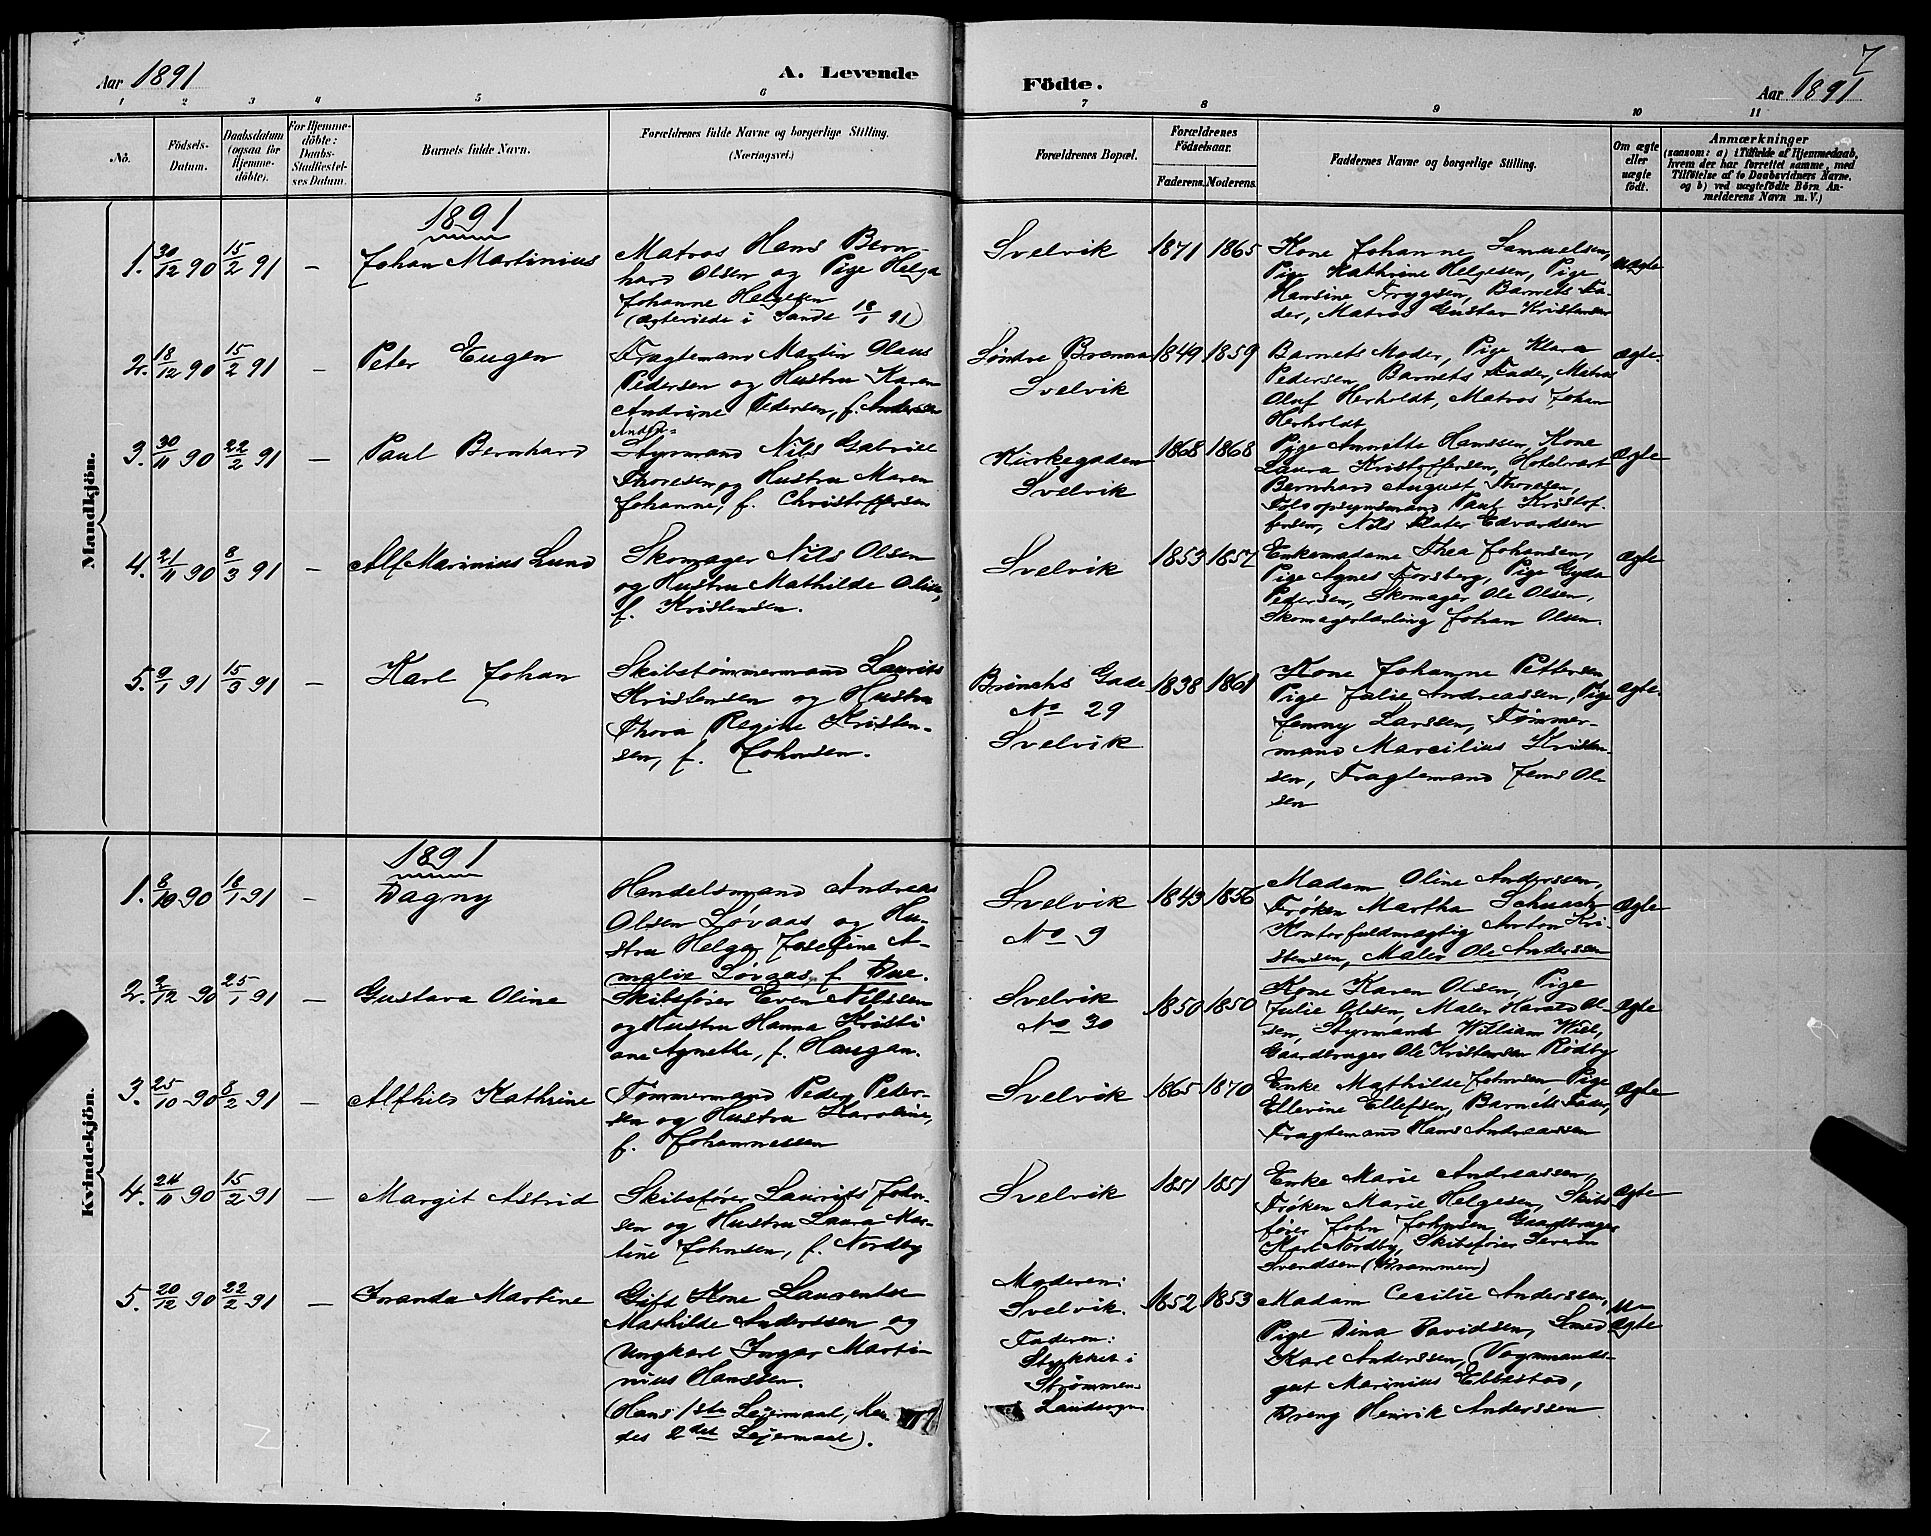 7
Aar 1891
A. Levende
Födte.
Aar 1891
1 2 3 4 5 6 7 8 9 10 11
No.
Födsels-
Datum.
Daabsdatum
(ogsaa for
Hjemme-
döbte).
For Hjemme-
döbte:
Daabs-
Stadfæstel-
ses Datum.
Barnets fulde Navn.
Forældrenes fulde Navne og borgerlige Stilling.
(Næringsvei.)
Forældrenes Bopæl.
Forældrenes
Födselsaar.
Faderens. Moderens.
Faddernes Navne og borgerlige Stilling.
Om ægte
eller
uægte
födt.
Anmærkninger
(saasom: a) i Tilfælde af Hjemmedaab,
hvem der har forrettet samme, med
Tilföielse af to Daabsvidners Navne,
og b) ved uægtefödte Börn An-
melderens Navn m. V.)
Mandkjön.
1891
1. 30/12 90 15/2 91 — Johan Martinius
Matros Hans Bern-
hard Olsen og Pige Helga
Johanne Helgesen
(Ægteviede i Sande 18/1 91)
Svelvik
1871 1865
Kone Johanne Samuelsen,
Pige Kathrine Helgesen, Pige
Hansine Trygsen, Barnets Fa-
der, Matros Gustav Kristensen
uægte
2. 18/12 90 15/2 91 — Peter Eugen
Fragtemand Martin Olaus
Pedersen og Hustru Karen
Andrine Pedersen, f. Andersen
Søndre Bramma
Svelvik
1849 1859
Barnets Moder, Pige Klara
Pedersen, Barnets Fader, Matros
Oluf Herholdt, Matros Johan
Herholdt
ægte.
3. 30/11 90 22/2 91 — Paul Bernhard
Styrmand Nils Gabriel
Thoresen og Hustru Maren
Johanne, f. Christoffersen
Kirkegaden
Svelvik
1868 1868
Pige Annette Hanssen, Kone
Laura Kristoffersen, Hotelvært
Bernhard August Thoresen,
Toldopsynsmand Paul Kristof-
fersen, Nils Edvardsen
ægte
4. 21/11 90 8/3 91 — Alf Marinius Lund
Skomager Nils Olsen
og Hustru Mathilde Olsen,
f. Kristensen.
Svelvik
1853 1857
Enkemadame Thea Johansen,
Pige Agnes Forsberg, Pige Gyda
Pedersen, Skomager Ole Olsen,
Skomagerlærling Johan Olsen.
ægte
5. 9/1 91 15/3 91 — Karl Johan
Skibstømmermand Laurits
Kristensen og Hustru
Thora Regine Kristen-
sen, f. Johnsen.
Brinchs Gade
No 29
Svelvik
1838 1861
Kone Johanne Pettersen,
Pige Julie Andreassen, Pige
Jenny Larssen, Tømmer-
mand Marcilius Kristen-
sen, Fragtemand Jens Ol-
sen
ægte.
Kvindekjön.
1891
1. 8/10 90 18/1 91 — Dagny
Handelsmand Andreas
Olsen Løvaas og Hu-
stru Helga Josefine A-
malie Løvaas, f. Bue.
Svelvik
No 9
1843 1856
Madam Oline Anderssen,
Frøken Martha Schwach
Kontorfuldmægtig Anton Kri-
stensen, Maler Ole Andersen
ægte
2. 2/12 90 25/1 91 — Gustava Oline
Skibsfører Even Nilssen
og Hustru Hanna Kristi
ane Agnethe, f. Haugan.
Svelvik
No 30
1850 1850
Kone Karen Olsen, Pige
Julie Olsen, Maler Harald Ol-
sen, Styrmand William Wiel,
Gaardbruger Ole Kristensen Rødby
ægte
3. 25/10 90 8/2 91 — Alfhild Kathrine
Tømmermand Peder Peder-
sen og Hustru Karoline,
f. Johannessen
Svelvik
1865 1870
Enke Mathilde Johnsen Pige
Ellevine Ellefsen, Barnets Fader,
Fragtemand Hans Andreassen
ægte
4. 24/11 90 15/2 91 — Margit Astrid
Skibsfører Laurits John-
sen og Hustru Laura Mar-
tine Johnsen, f. Nordby
Svelvik
1851 1851
Enke Marie Andreassen,
Frøken Marie Helgesen, Skibs-
fører John Johnsen, Gaardbruger
Karl Nordby, Skibsfører Severin
Svendsen (Drammen)
ægte
5. 20/12 90 22/2 91 — Iranda Martine
Gift Kone Laurentse
Mathilde Anderssen og
Ungkarl Ingar Marti-
nius Hanssen.
(Hans 1ste Leiermaal, Hen
des 2det Leiermaal).
Moderen:
Svelvik.
Faderen:
Stykket i
Strømmen
Landsogn
1852 1853
Madam Cecilie Anderssen,
Pige Dina Davidsen, Smed
Karl Anderssen, Vognmands-
gut Marinius Ebbestad,
Dreng Henrik Anderssen
u-
ægte